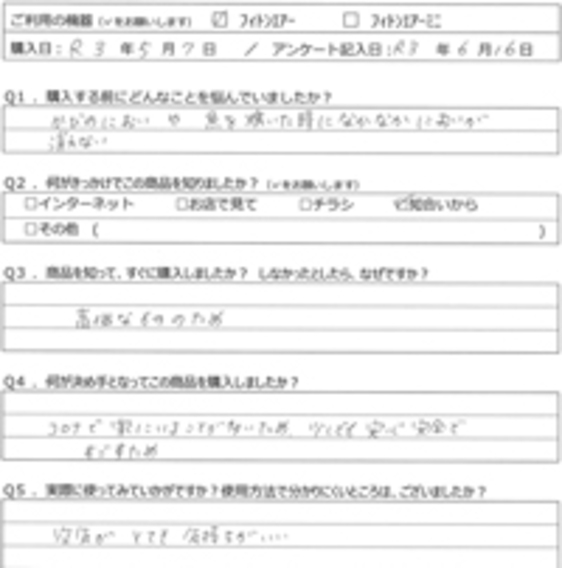 ご利用の機器(✓をお願いします) ☑ フィトンエアー □ フィトンエアーミニ
購入日: R 3 年 5 月 7 日 / アンケート記入日: R3 年 6 月 16 日
Q1. 購入する前にどんなことを悩んでいましたか?
かびのにおい や 魚を焼いた時になかなかにおいが
消えない
Q2. 何がきっかけでこの商品を知りましたか?(✓をお願いします)
□インターネット □お店で見て □チラシ ☑知合いから
□その他 ( )
Q3. 商品を知って、すぐに購入しましたか? しなかったとしたら、なぜですか?
高価なもののため
Q4. 何が決め手となってこの商品を購入しましたか?
コロナで 家にいることが多いため、少しでも 安心 安全で
すごすため
Q5. 実際に使ってみていかがですか?使用方法で分かりにくいところは、ございましたか?
空気が とても 気持ちがいい